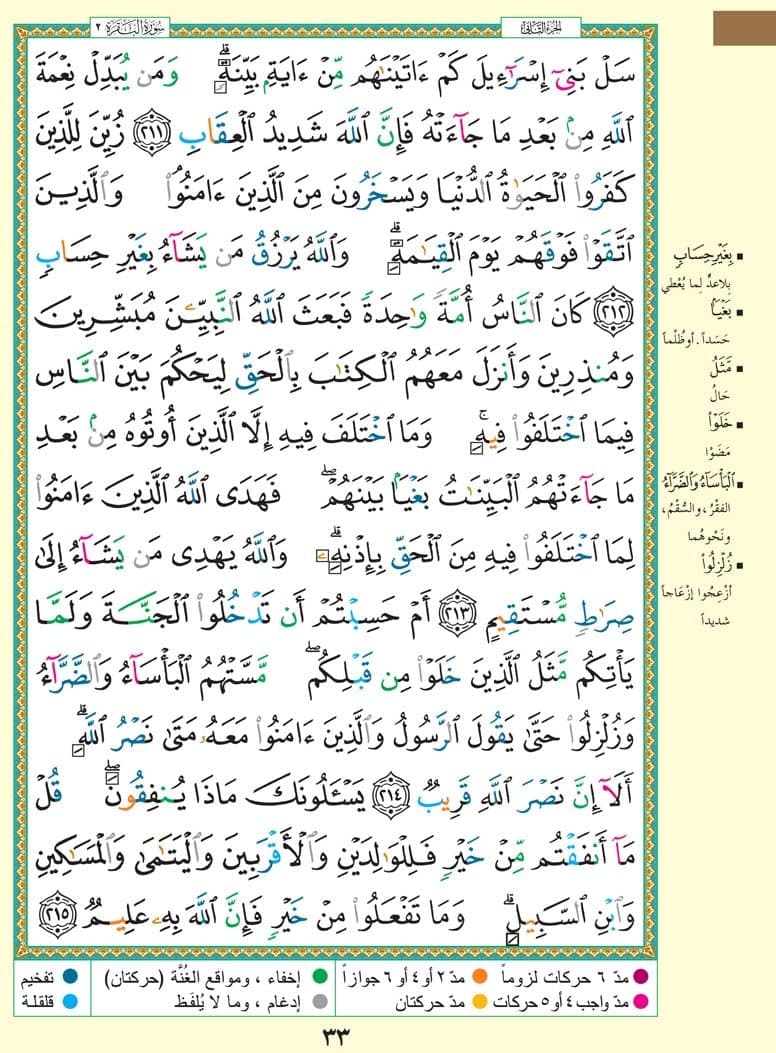 الجزء الثاني
سورة البقرة ٢
سَلْ بَنِىٓ إِسْرَٰٓءِيلَ كَمْ ءَاتَيْنَٰهُم مِّنْ ءَايَةٍۭ بَيِّنَةٍۗ وَمَن يُبَدِّلْ نِعْمَةَ
ٱللَّهِ مِنۢ بَعْدِ مَا جَآءَتْهُ فَإِنَّ ٱللَّهَ شَدِيدُ ٱلْعِقَابِ ٢١١ زُيِّنَ لِلَّذِينَ
كَفَرُوا۟ ٱلْحَيَوٰةُ ٱلدُّنْيَا وَيَسْخَرُونَ مِنَ ٱلَّذِينَ ءَامَنُوا۟ۘ وَٱلَّذِينَ
ٱتَّقَوْا۟ فَوْقَهُمْ يَوْمَ ٱلْقِيَٰمَةِۗ وَٱللَّهُ يَرْزُقُ مَن يَشَآءُ بِغَيْرِ حِسَابٍ
٢١٢ كَانَ ٱلنَّاسُ أُمَّةً وَٰحِدَةً فَبَعَثَ ٱللَّهُ ٱلنَّبِيِّۦنَ مُبَشِّرِينَ
وَمُنذِرِينَ وَأَنزَلَ مَعَهُمُ ٱلْكِتَٰبَ بِٱلْحَقِّ لِيَحْكُمَ بَيْنَ ٱلنَّاسِ
فِيمَا ٱخْتَلَفُوا۟ فِيهِۚ وَمَا ٱخْتَلَفَ فِيهِ إِلَّا ٱلَّذِينَ أُوتُوهُ مِنۢ بَعْدِ
مَا جَآءَتْهُمُ ٱلْبَيِّنَٰتُ بَغْيًۢا بَيْنَهُمْۖ فَهَدَى ٱللَّهُ ٱلَّذِينَ ءَامَنُوا۟
لِمَا ٱخْتَلَفُوا۟ فِيهِ مِنَ ٱلْحَقِّ بِإِذْنِهِۦۗ وَٱللَّهُ يَهْدِى مَن يَشَآءُ إِلَىٰ
صِرَٰطٍ مُّسْتَقِيمٍ ٢١٣ أَمْ حَسِبْتُمْ أَن تَدْخُلُوا۟ ٱلْجَنَّةَ وَلَمَّا
يَأْتِكُم مَّثَلُ ٱلَّذِينَ خَلَوْا۟ مِن قَبْلِكُمۖ مَّسَّتْهُمُ ٱلْبَأْسَآءُ وَٱلضَّرَّآءُ
وَزُلْزِلُوا۟ حَتَّىٰ يَقُولَ ٱلرَّسُولُ وَٱلَّذِينَ ءَامَنُوا۟ مَعَهُۥ مَتَىٰ نَصْرُ ٱللَّهِۗ
أَلَآ إِنَّ نَصْرَ ٱللَّهِ قَرِيبٌ ٢١٤ يَسْـَٔلُونَكَ مَاذَا يُنفِقُونَۖ قُلْ
مَآ أَنفَقْتُم مِّنْ خَيْرٍ فَلِلْوَٰلِدَيْنِ وَٱلْأَقْرَبِينَ وَٱلْيَتَٰمَىٰ وَٱلْمَسَٰكِينِ
وَٱبْنِ ٱلسَّبِيلِۗ وَمَا تَفْعَلُوا۟ مِنْ خَيْرٍ فَإِنَّ ٱللَّهَ بِهِۦ عَلِيمٌ ٢١٥
▪ بِغَيْرِ حِسَابٍ
بلا عدٍّ لِما يُعْطي
▪ بَغْيًۢا
حَسَداً . أو ظُلْماً
▪ مَّثَلُ
حَالُ
▪ خَلَوْا۟
مَضَوْا
▪ ٱلْبَأْسَآءُ وَٱلضَّرَّآءُ
الفَقْرُ ، والسُّقْمُ ،
ونَحْوهُما
▪ زُلْزِلُوا۟
أُزْعِجُوا إزْعَاجاً
شديداً
مدّ ٦ حركات لزوماً
مدّ ٢ أو ٤ أو ٦ جوازاً
إخفاء ، ومواقع الغُنَّة (حركتان)
تفخيم
مدّ واجب ٤ أو ٥ حركات
مدّ حركتان
إدغام ، وما لا يُلفَظ
قلقلة
٣٣